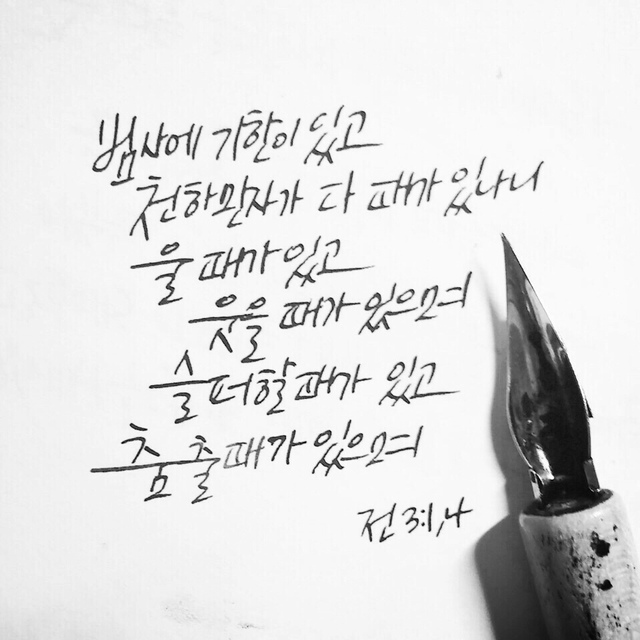 범사에 기한이 있고
천하만사가 다 때가 있나니
울 때가 있고
웃을 때가 있으며
슬퍼할 때가 있고
춤출 때가 있으며
전 3:1,4